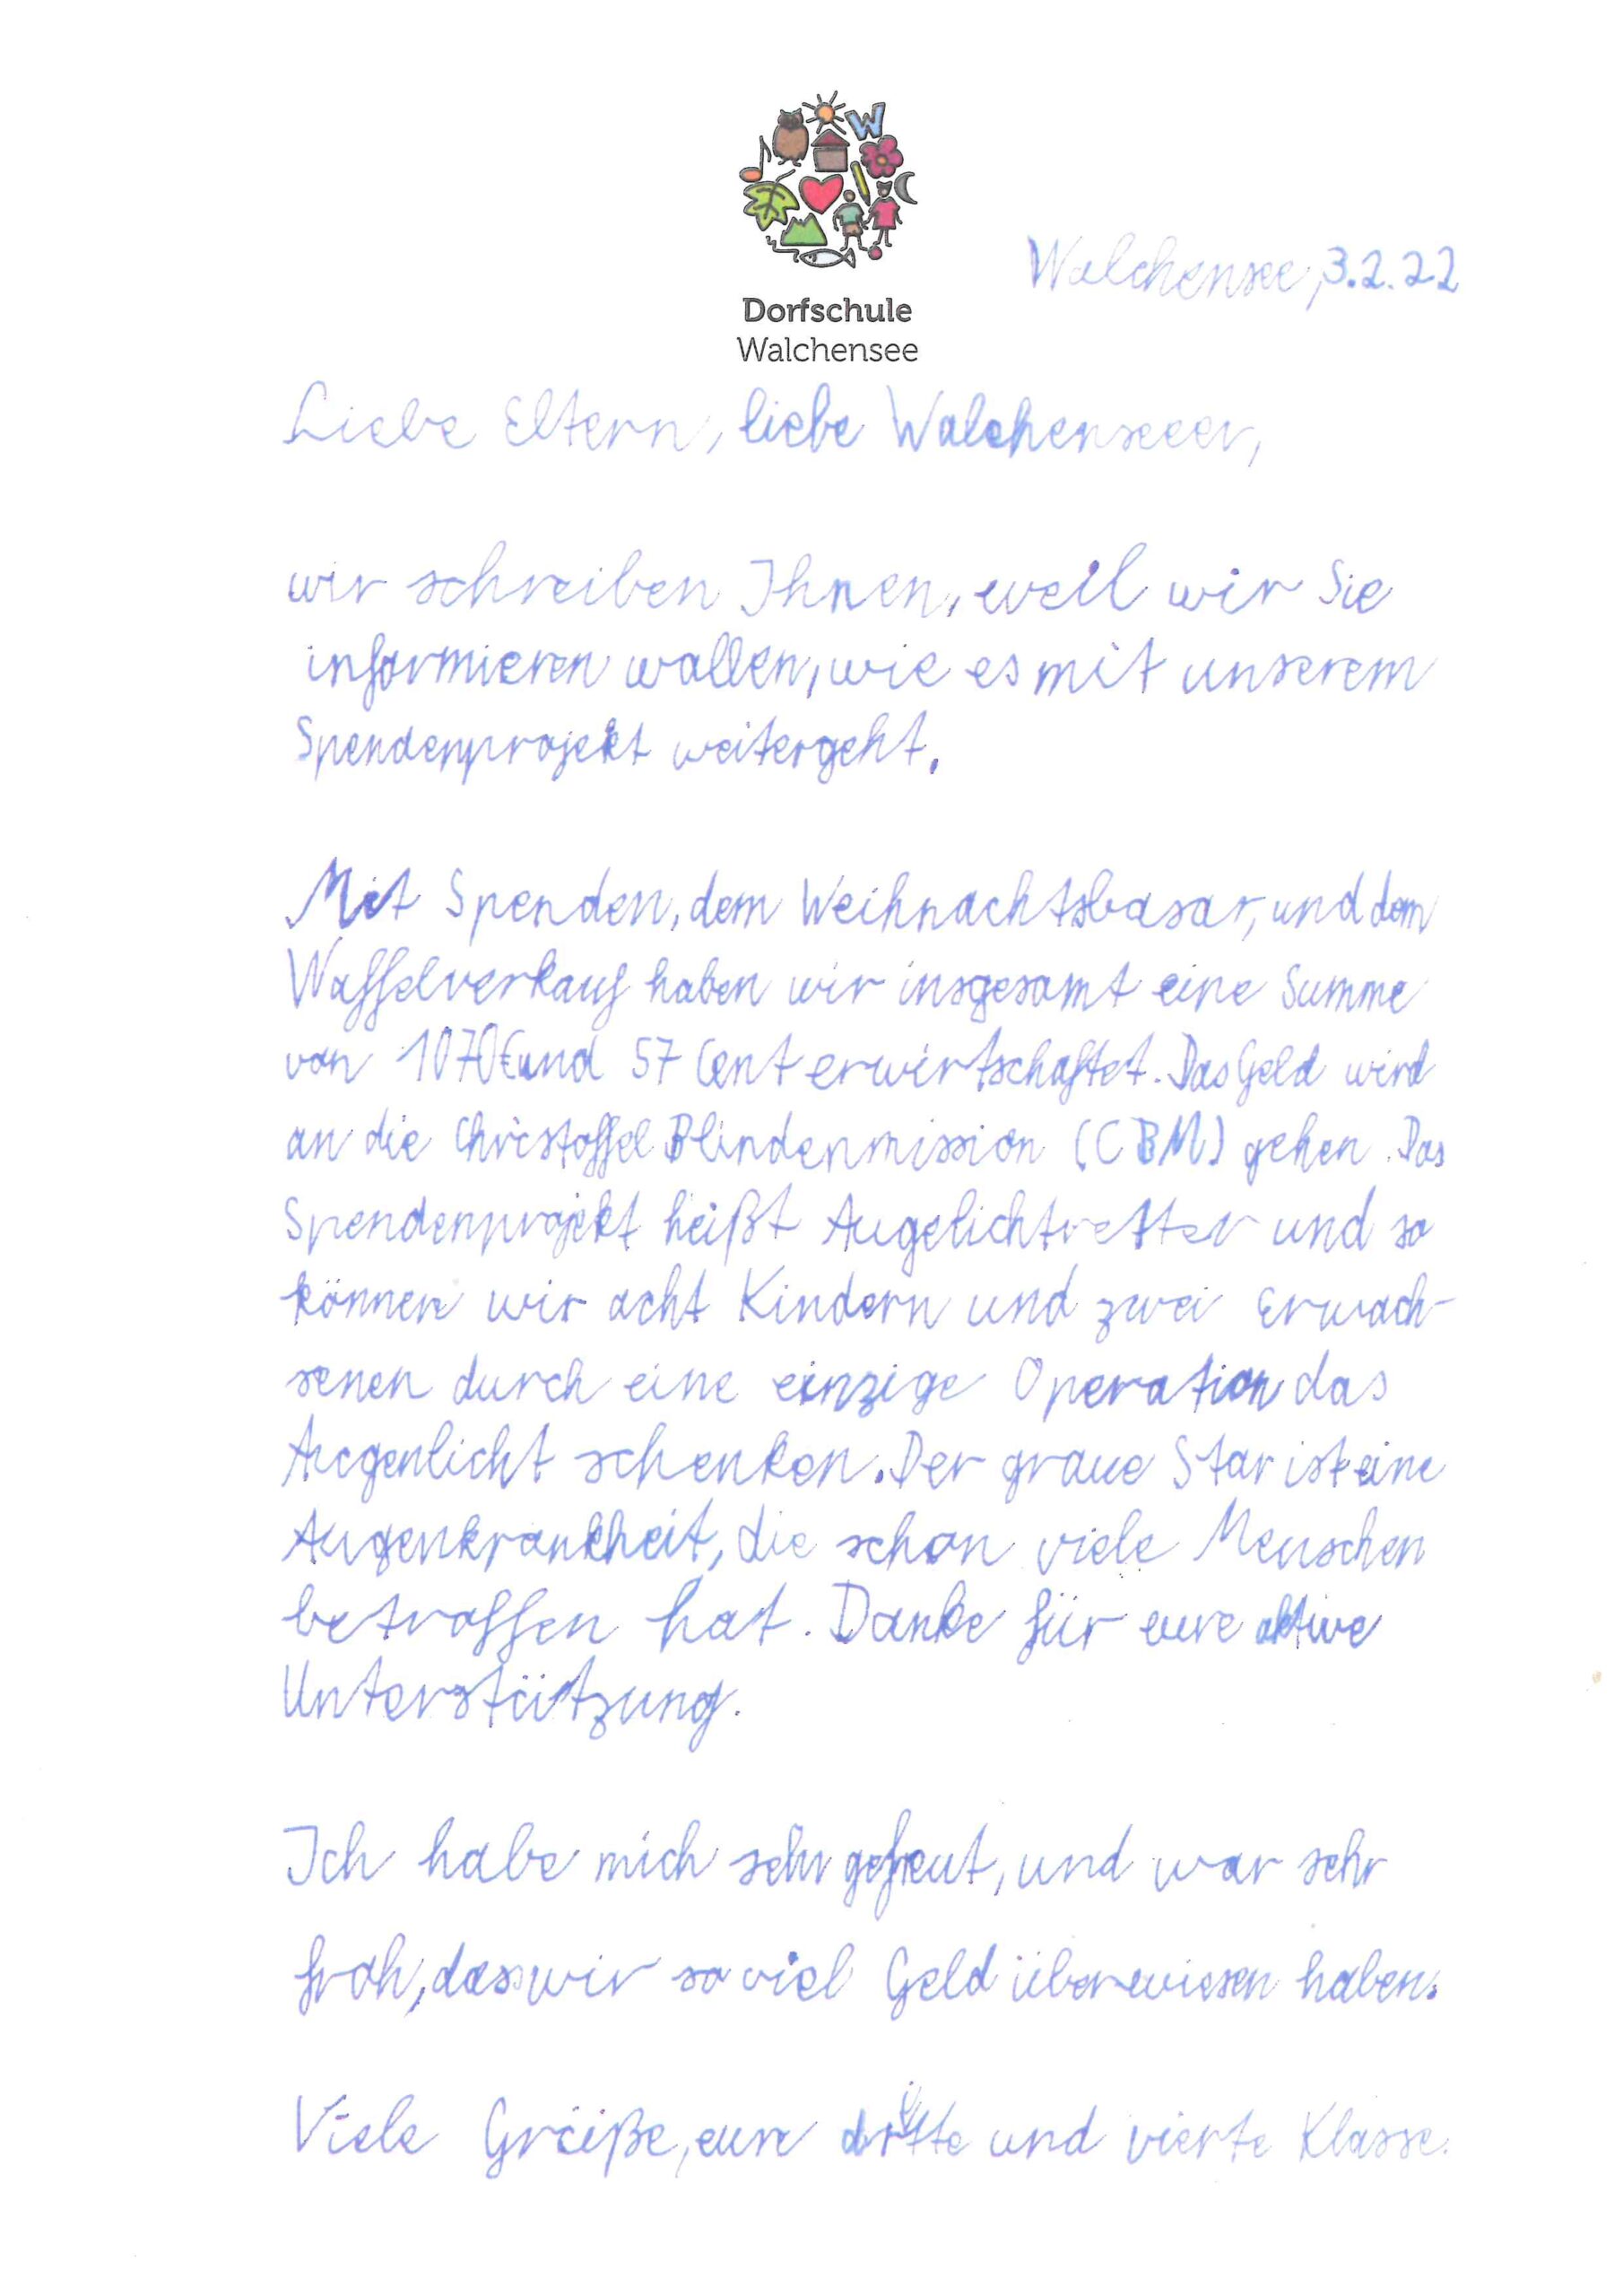 W
Dorfschule
Walchensee
Walchensee, 3.2.22
Liebe Eltern, liebe Walchenseeer,
wir schreiben Ihnen, weil wir Sie
informieren wollen, wie es mit unserem
Spendenprojekt weitergeht.
Mit Spenden, dem Weihnachtsbasar, und dem
Waffelverkauf haben wir insgesamt eine Summe
von 1070€ und 57 Cent erwirtschaftet. Das Geld wird
an die Christoffel Blindenmission (CBM) gehen. Das
Spendenprojekt heißt Augelichtretter und so
können wir acht Kindern und zwei Erwach-
senen durch eine einzige Operation das
Augenlicht schenken. Der graue Star ist eine
Augenkrankheit, die schon viele Menschen
betroffen hat. Danke für eure aktive
Unterstützung.
Ich habe mich sehr gefreut, und war sehr
froh, dass wir so viel Geld überwiesen haben.
Viele Grüße, eure dritte und vierte Klasse.